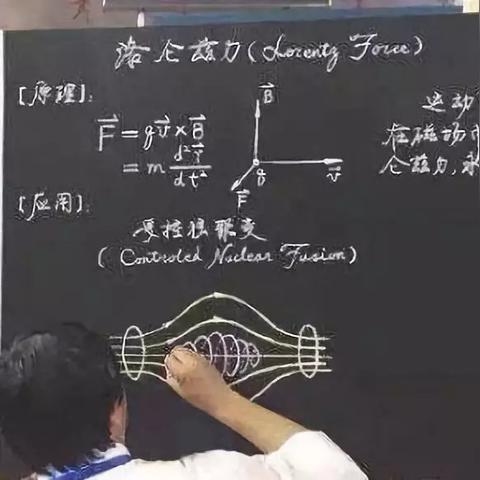 洛仑兹力(Lorentz Force)
[原理]:
F⃗ = qv⃗ × B⃗
= m d²r⃗/dt²
B⃗
q
v⃗
F⃗
运动
在磁场
仑兹力,
[应用]:
受控核聚变
(Controled Nuclear Fusion)